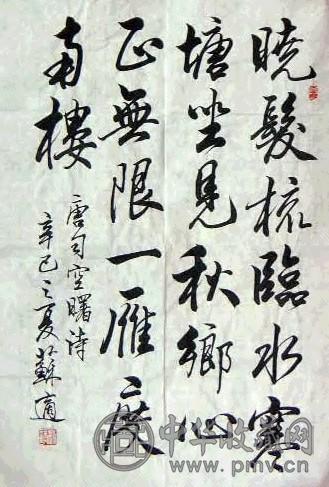 曉髮梳臨水寒
塘坐見秋鄉心
正無限一雁度
南樓
唐司空曙詩
辛巳之夏蘇適
中华收藏网
www.pmv.cn